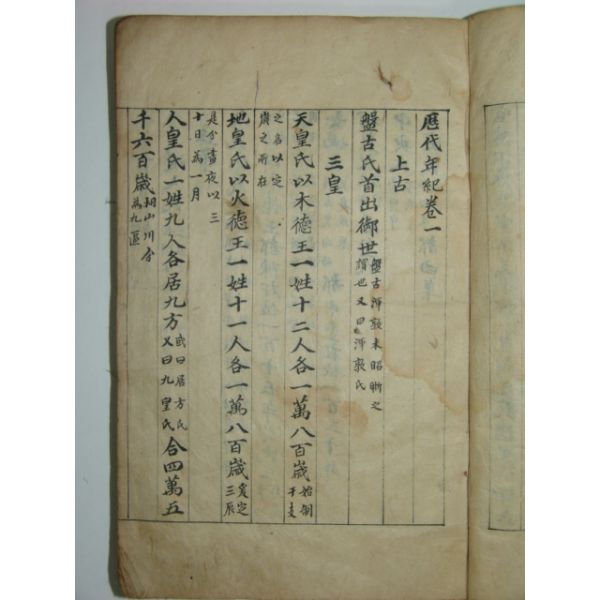 厯代年紀卷一
上古
盤古氏首出御世盤古渾敦未昭晣之謂也又曰渾敦氏
三皇
天皇氏以木德王一姓十二人各一萬八百歲始制干支
之名以定歲之所在
地皇氏以火德王一姓十一人各一萬八百歲爰定三辰
是分晝夜以三十日爲一月
人皇氏一姓九人各居九方或曰居方氏又曰九皇氏合四萬五
千六百歲相山川分爲九區